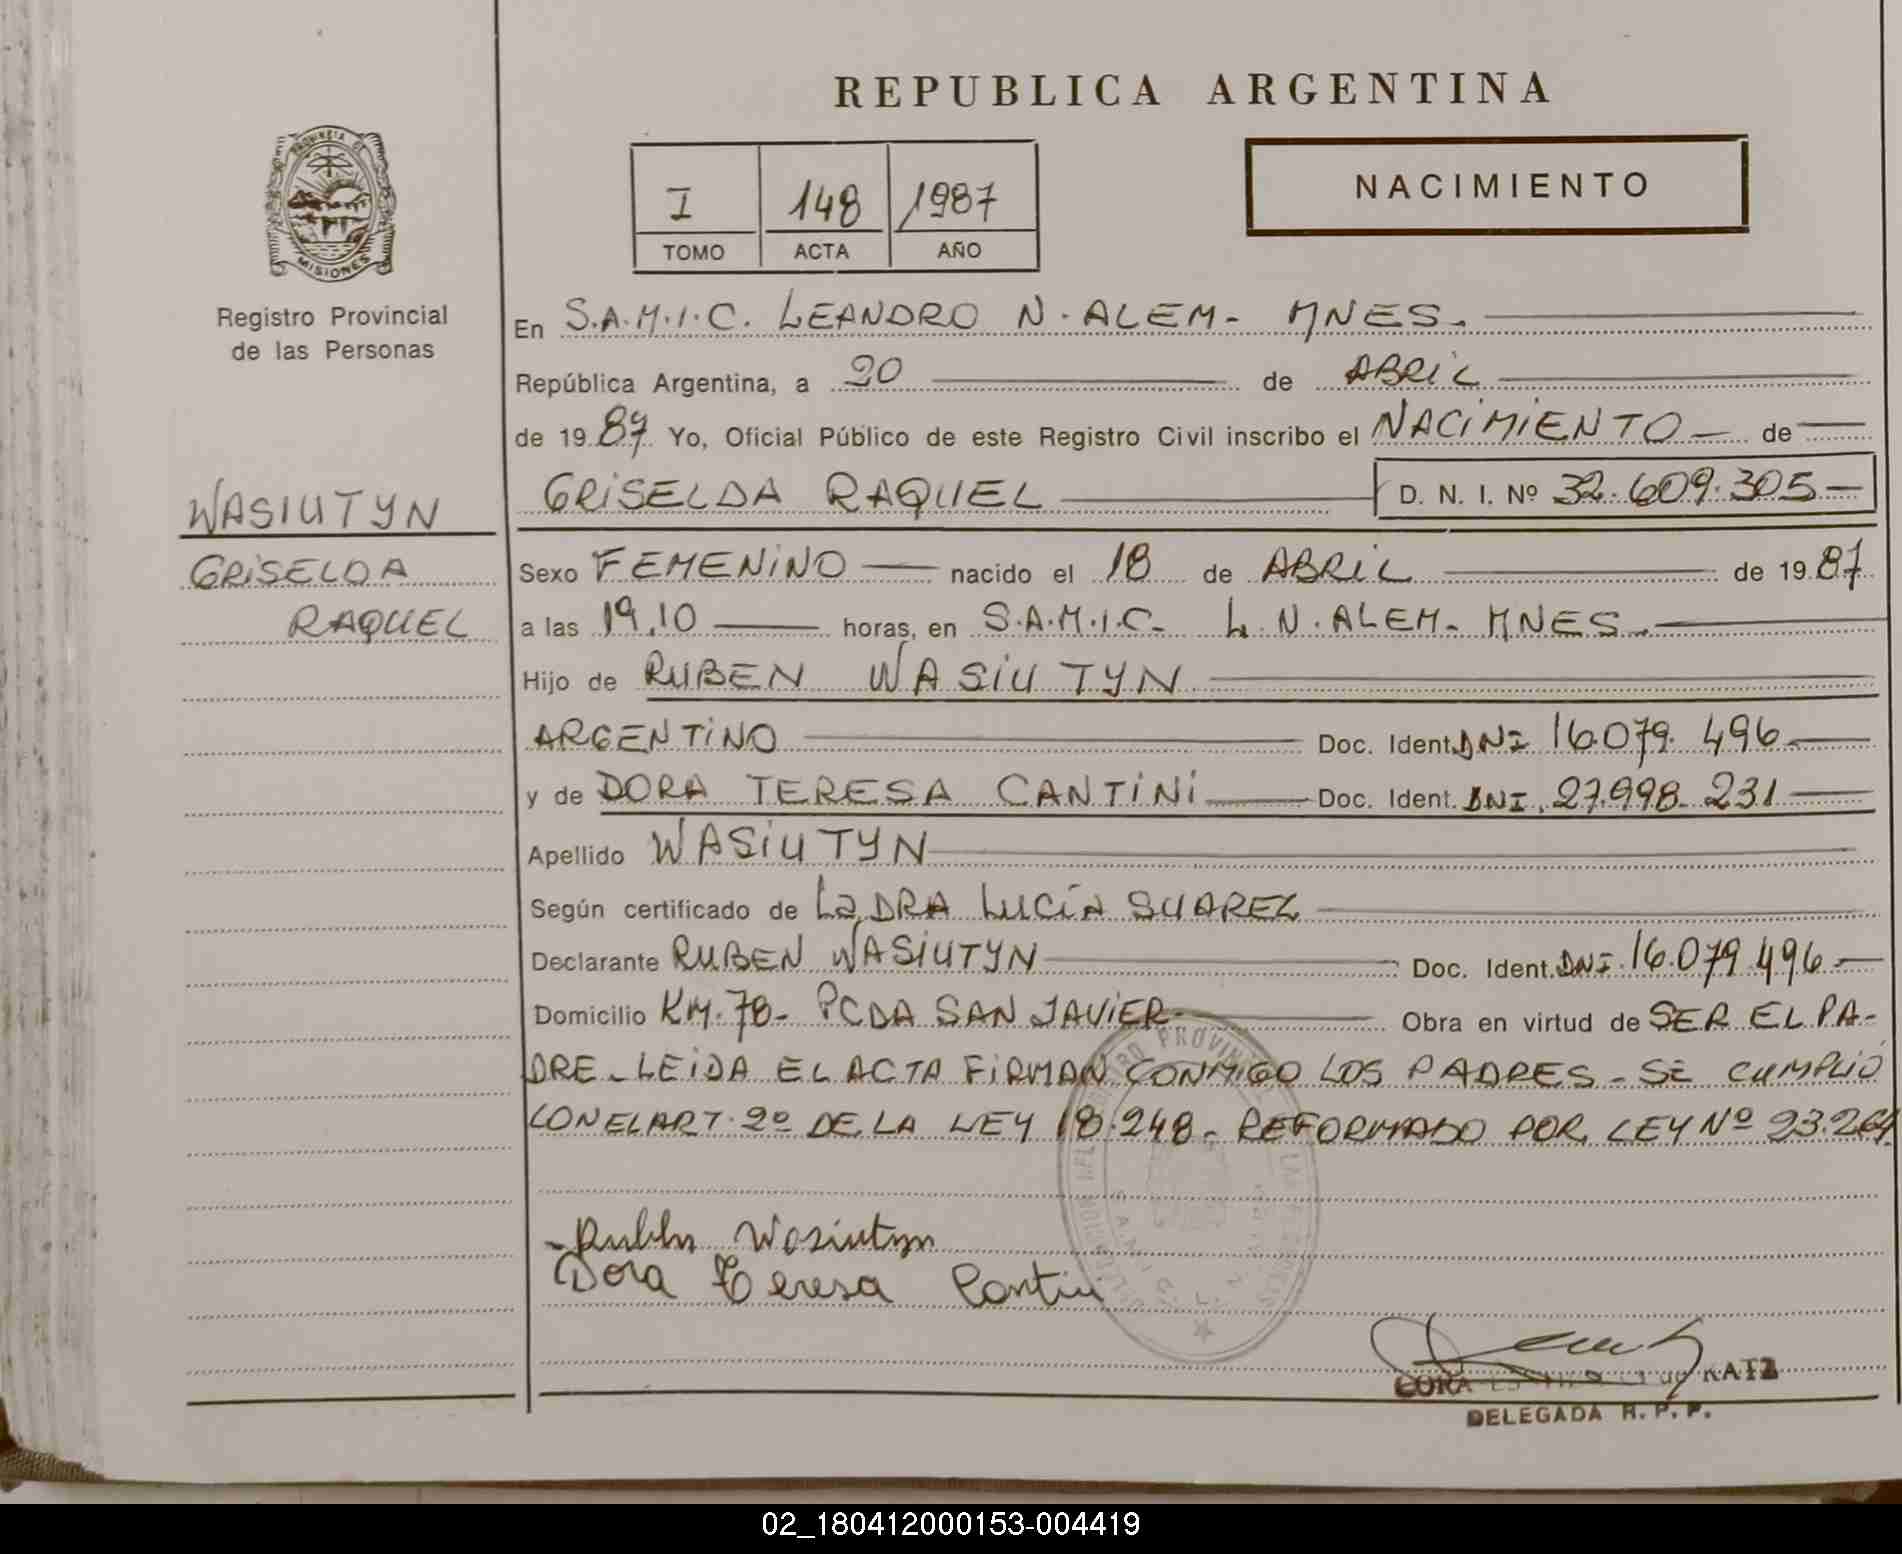 REPUBLICA ARGENTINA
PROVINCIA DE
MISIONES
Registro Provincial
de las Personas
I 148 1987
TOMO ACTA AÑO
NACIMIENTO
En S.A.M.I.C. LEANDRO N. ALEM - MNES.
República Argentina, a 20 de ABRIL
de 1987 Yo, Oficial Público de este Registro Civil inscribo el NACIMIENTO de
GRISELDA RAQUEL D. N. I. Nº 32.609.305
WASIUTYN
GRISELDA
RAQUEL
Sexo FEMENINO nacido el 18 de ABRIL de 1987
a las 19,10 horas, en S.A.M.I.C. L. N. ALEM - MNES.
Hijo de RUBEN WASIUTYN
ARGENTINO Doc. Ident. DNI 16.079.496
y de DORA TERESA CANTINI Doc. Ident. DNI. 27.998.231
Apellido WASIUTYN
Según certificado de La DRA LUCÍA SUAREZ
Declarante RUBEN WASIUTYN Doc. Ident. DNI. 16.079.496
Domicilio KM. 78 - PCDA SAN JAVIER Obra en virtud de SER EL PA-
DRE - LEIDA EL ACTA FIRMAN CONMIGO LOS PADRES - SE CUMPLIÓ
CON EL ART. 2º DE LA LEY 18.248 - REFORMADO POR LEY Nº 23.264
Wasiutyn
Dora Teresa Cantini
KATZ
DELEGADA R. P. P.
02_180412000153-004419